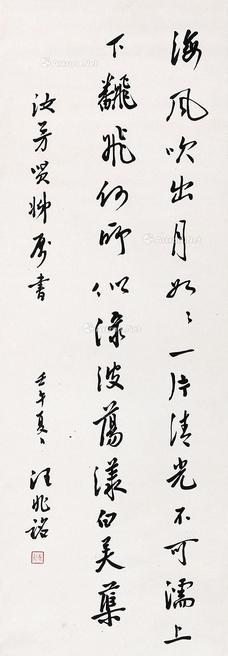 海風吹出月如々一片清光不可濡上
下飜飛何所似淥波蕩漾白芙蕖
汝芳賢姊屬書
壬午夏 汪兆銘